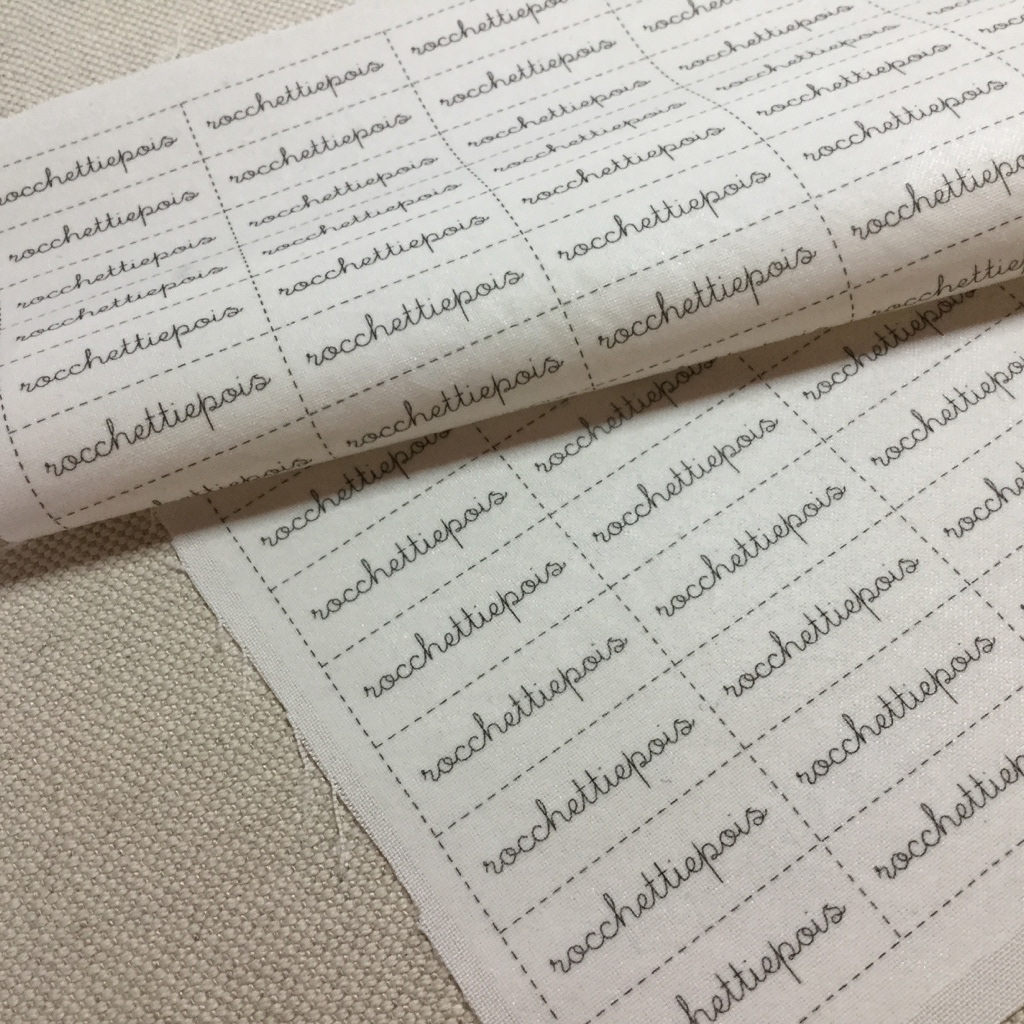 rocchettiepois rocchettiepois rocchettiepois
rocchettiepois rocchettiepois rocchettiepois rocchettiepois
rocchettiepois rocchettiepois rocchettiepois rocchettiepois
rocchettiepois rocchettiepois rocchettiepois rocchettiepois
rocchettiepois rocchettiepois rocchettiepois rocchettiepois
rocchettiepois rocchettiepois rocchettiepois
rocchettiepois rocchettiepois
rocchettiepois rocchettiepois rocchettiepois
rocchettiepois rocchettiepois
rocchettiepois rocchettiepois
rocchettiepois rocchettiepois
rocchettiepois rocchettiepois
rocchettiepois
rocchettiepois
hettiepois